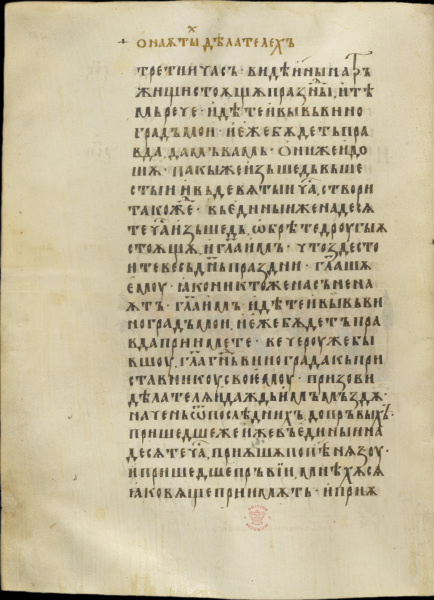 + О наѧтꙑⷯ дѣлателехъ
третии часъ· видѣ инꙑ на тръ
жищи стоѧщѧ праздни, и тѣ
мь рече· идѣте и вꙑ въ вино
градъ мои· и еже бѫдеть пра
вда, дамъ вамъ· Они же идо
шѧ· пакꙑ же изъшедь въ ше
стꙑи и въ девѧтꙑи ча, створи
такожⷣе· въ единꙑи же на десѧ
те ча изъшедъ, ѡбрѣте дроугꙑѧ
стоѧщѧ, и гла имъ· что зде сто
ите весь днь праздни· глашѧ
емоу· ꙗко никтоже насъ не на
ѧтъ· гла имъ идѣте и вꙑ въ ви
ноградъ мои, и еже бѫдетъ пра
вда приимете· вечероу же бꙑ
вшоу, гла гнь винограда къ при
ставникоу своемоу· призови
дѣлателѧ и даждь имъ мъздѫ·
наченъ ѿ послѣднихъ, до прьвꙑхъ·
пришедше же иже въ единꙑи на
десѧте ча, приѧшѧ по пѣнѧзоу·
и пришедше пръвїи, мнѣхѫсѧ
ꙗко вѧще приимѫть· и приѧ